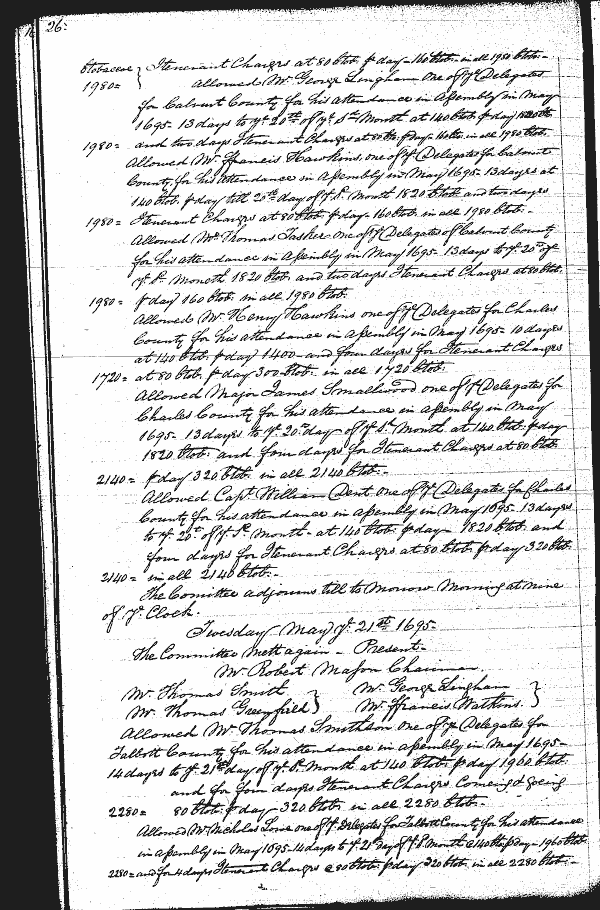 26:
lbtobaccoe } Itenerant Charges at 80 lbtob. p day - 160 lbtob. in all 1980 lbtob. -
1980= Allowed Mr. George Lingham one of ye Delegates
for Calvert County for his attendance in Assembly in May
1695 - 13 days to ye 20th of ye sd Month at 140 lbtob p day 1820 lbtob
1980= and two days Itenerant Charges at 80 lbtob. p day - 160 lbtob. in all 1980 lbtob.
Allowed Mr. ffrancis Hawkins, one of ye Delegates for Calvert
County for his attendance in Assembly in May 1695 - 13 days at
140 lbtob. p day till 20th day of ye sd. Month 1820 lbtob and two days
1980= Itenerant Charges at 80 lbtob. p day. 160 lbtob. in all 1980 lbtob. -
Allowed Mr. Thomas Tasker one of ye Delegates of Calvert County
for his attendance in Assembly in May 1695 - 13 days to ye. 20th of
ye sd. Moneth 1820 lbtob. and two days Itenerant Charges at 80 lbtob.
1980= p day 160 lbtob. in all 1980 lbtob.
Allowed Mr. Henry Hawkins one of ye Delegates for Charles
County for his attendance in Assembly in May 1695 - 10 days
at 140 lbtob. p day 1400 - and four days for Itenerant Charges
1720= at 80 lbtob. p day 300 lbtob. in all 1720 lbtob.
Allowed Major James Smallwood one of ye Delegates for
Charles County for his attendance in Assembly in May
1695 - 13 days to ye. 20th day of ye sd. Month at 140 lbtob. p day
1820 lbtob. and four days for Itenerant Charges at 80 lbtob.
2140= p day 320 lbtob. in all 2140 lbtob. -
Allowed Capt. William Dent one of ye Delegates for Charles
County for his attendance in Assembly in May 1695 - 13 days
to ye 20th of ye sd. Month - at 140 lbtob. p day - 1820 lbtob. and
four days for Itenerant Charges at 80 lbtob p day 320 lbtob.
2140= in all 2140 lbtob. -
The Comittee adjourns till to Morrow Morning at nine
of ye Clock.
Tuesday May ye. 21st 1695 -
The Committee Mett again - Present -
Mr. Robert Mason Chairman.
Mr. Thomas Smith } Mr. George Lingham }
Mr. Thomas Greenfield } Mr. ffrancis Watkins. }
Allowed Mr. Thomas Smithson one of ye Delegates for
Talbott County for his attendance in Assembly in May 1695 -
14 days to ye. 21st day of ye sd. Month at 140 lbtob. p day 1960 lbtob.
and for four days Itenerant Charges Coming & going
2280= 80 lbtob. p day - 320 lbtob. in all 2280 lbtob. -
Allowed Mr. Nicholas Lowe one of ye Delegates for Talbott County for his attendance
in Assembly in May 1695 - 14 days to ye. 21st day of ye sd. Month @ 140 lbtob p day - 1960 lbtob
2280= and for 4 days Itenerant Charges @ 80 lbtob. p day 320 lbtob. in all 2280 lbtob. -